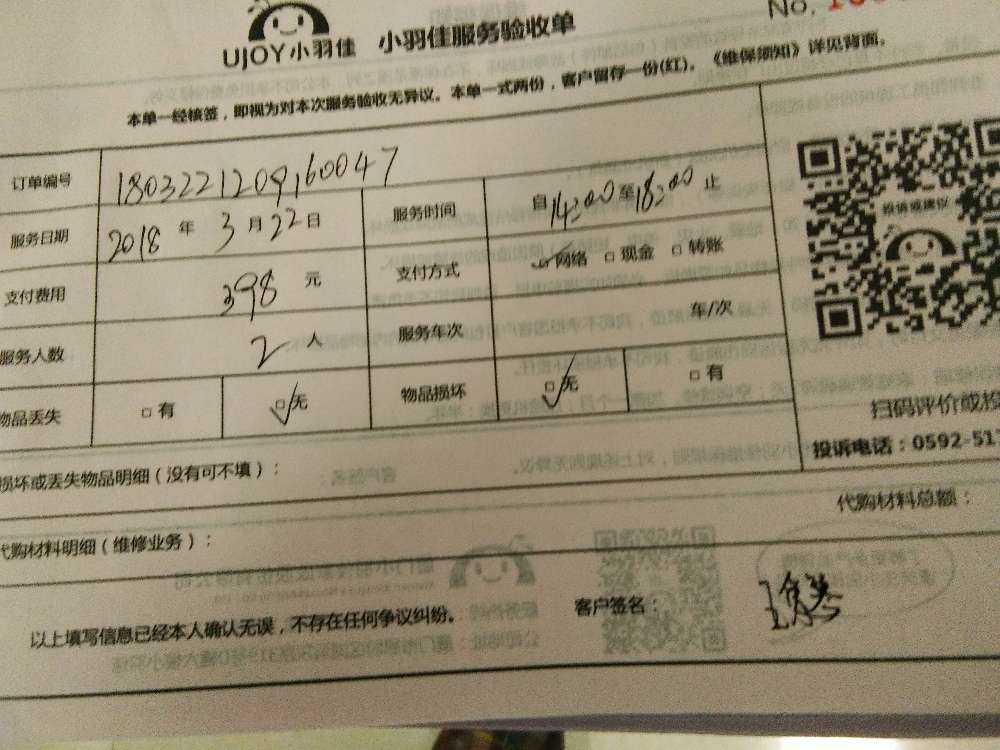 No.
UJOY小羽佳 小羽佳服务验收单
本单一经核签，即视为对本次服务验收无异议。本单一式两份，客户留存一份(红)。《维保须知》详见背面。
订单编号 1803221209160047
服务日期 2018 年 3 月 22 日 服务时间 自 14:00 至 18:00 止
支付费用 398 元 支付方式 网络 □ 现金 □ 转账
服务人数 2 人 服务年次 年/次
物品丢失 □ 有 □ 无 物品损坏 □ 无 □ 有
投诉或建议
扫码评价或投
投诉电话：0592-51
损坏或丢失物品明细（没有可不填）：
代购材料明细（维修业务）： 代购材料总额：
以上填写信息已经本人确认无误，不存在任何争议纠纷。 客户签名：